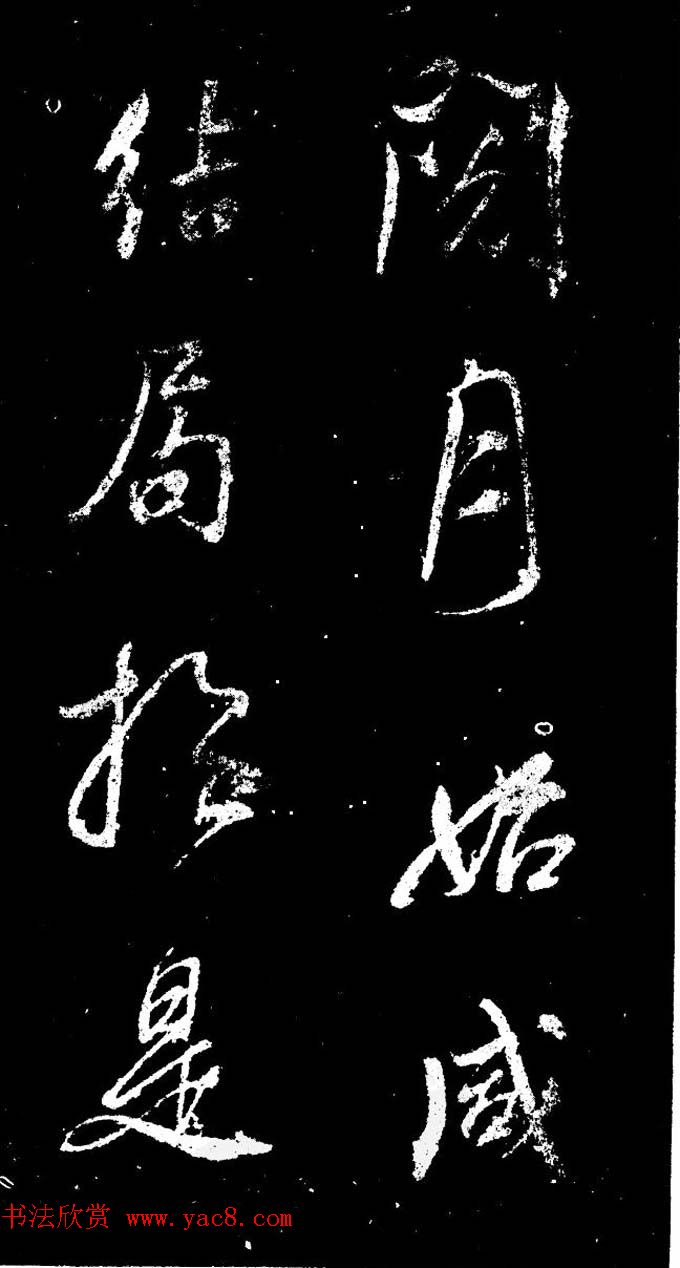 閲月始咸
結局於是
书法欣赏 www.yac8.com